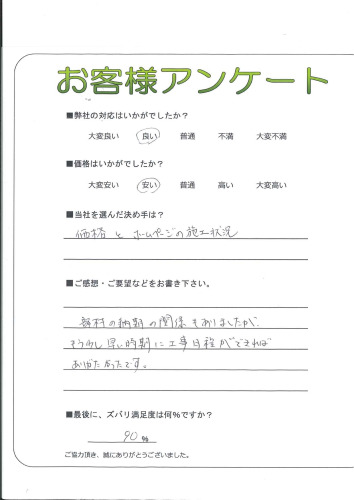 お客様アンケート
■弊社の対応はいかがでしたか?
大変良い 良い 普通 不満 大変不満
■価格はいかがでしたか?
大変安い 安い 普通 高い 大変高い
■当社を選んだ決め手は?
価格とホームページの施工状況
■ご感想・ご要望などをお書き下さい。
部材の納期の関係もありましたが、
もう少し早い時期に工事日程ができれば
ありがたかったです。
■最後に、ズバリ満足度は何%ですか?
90 %
ご協力頂き、誠にありがとうございました。